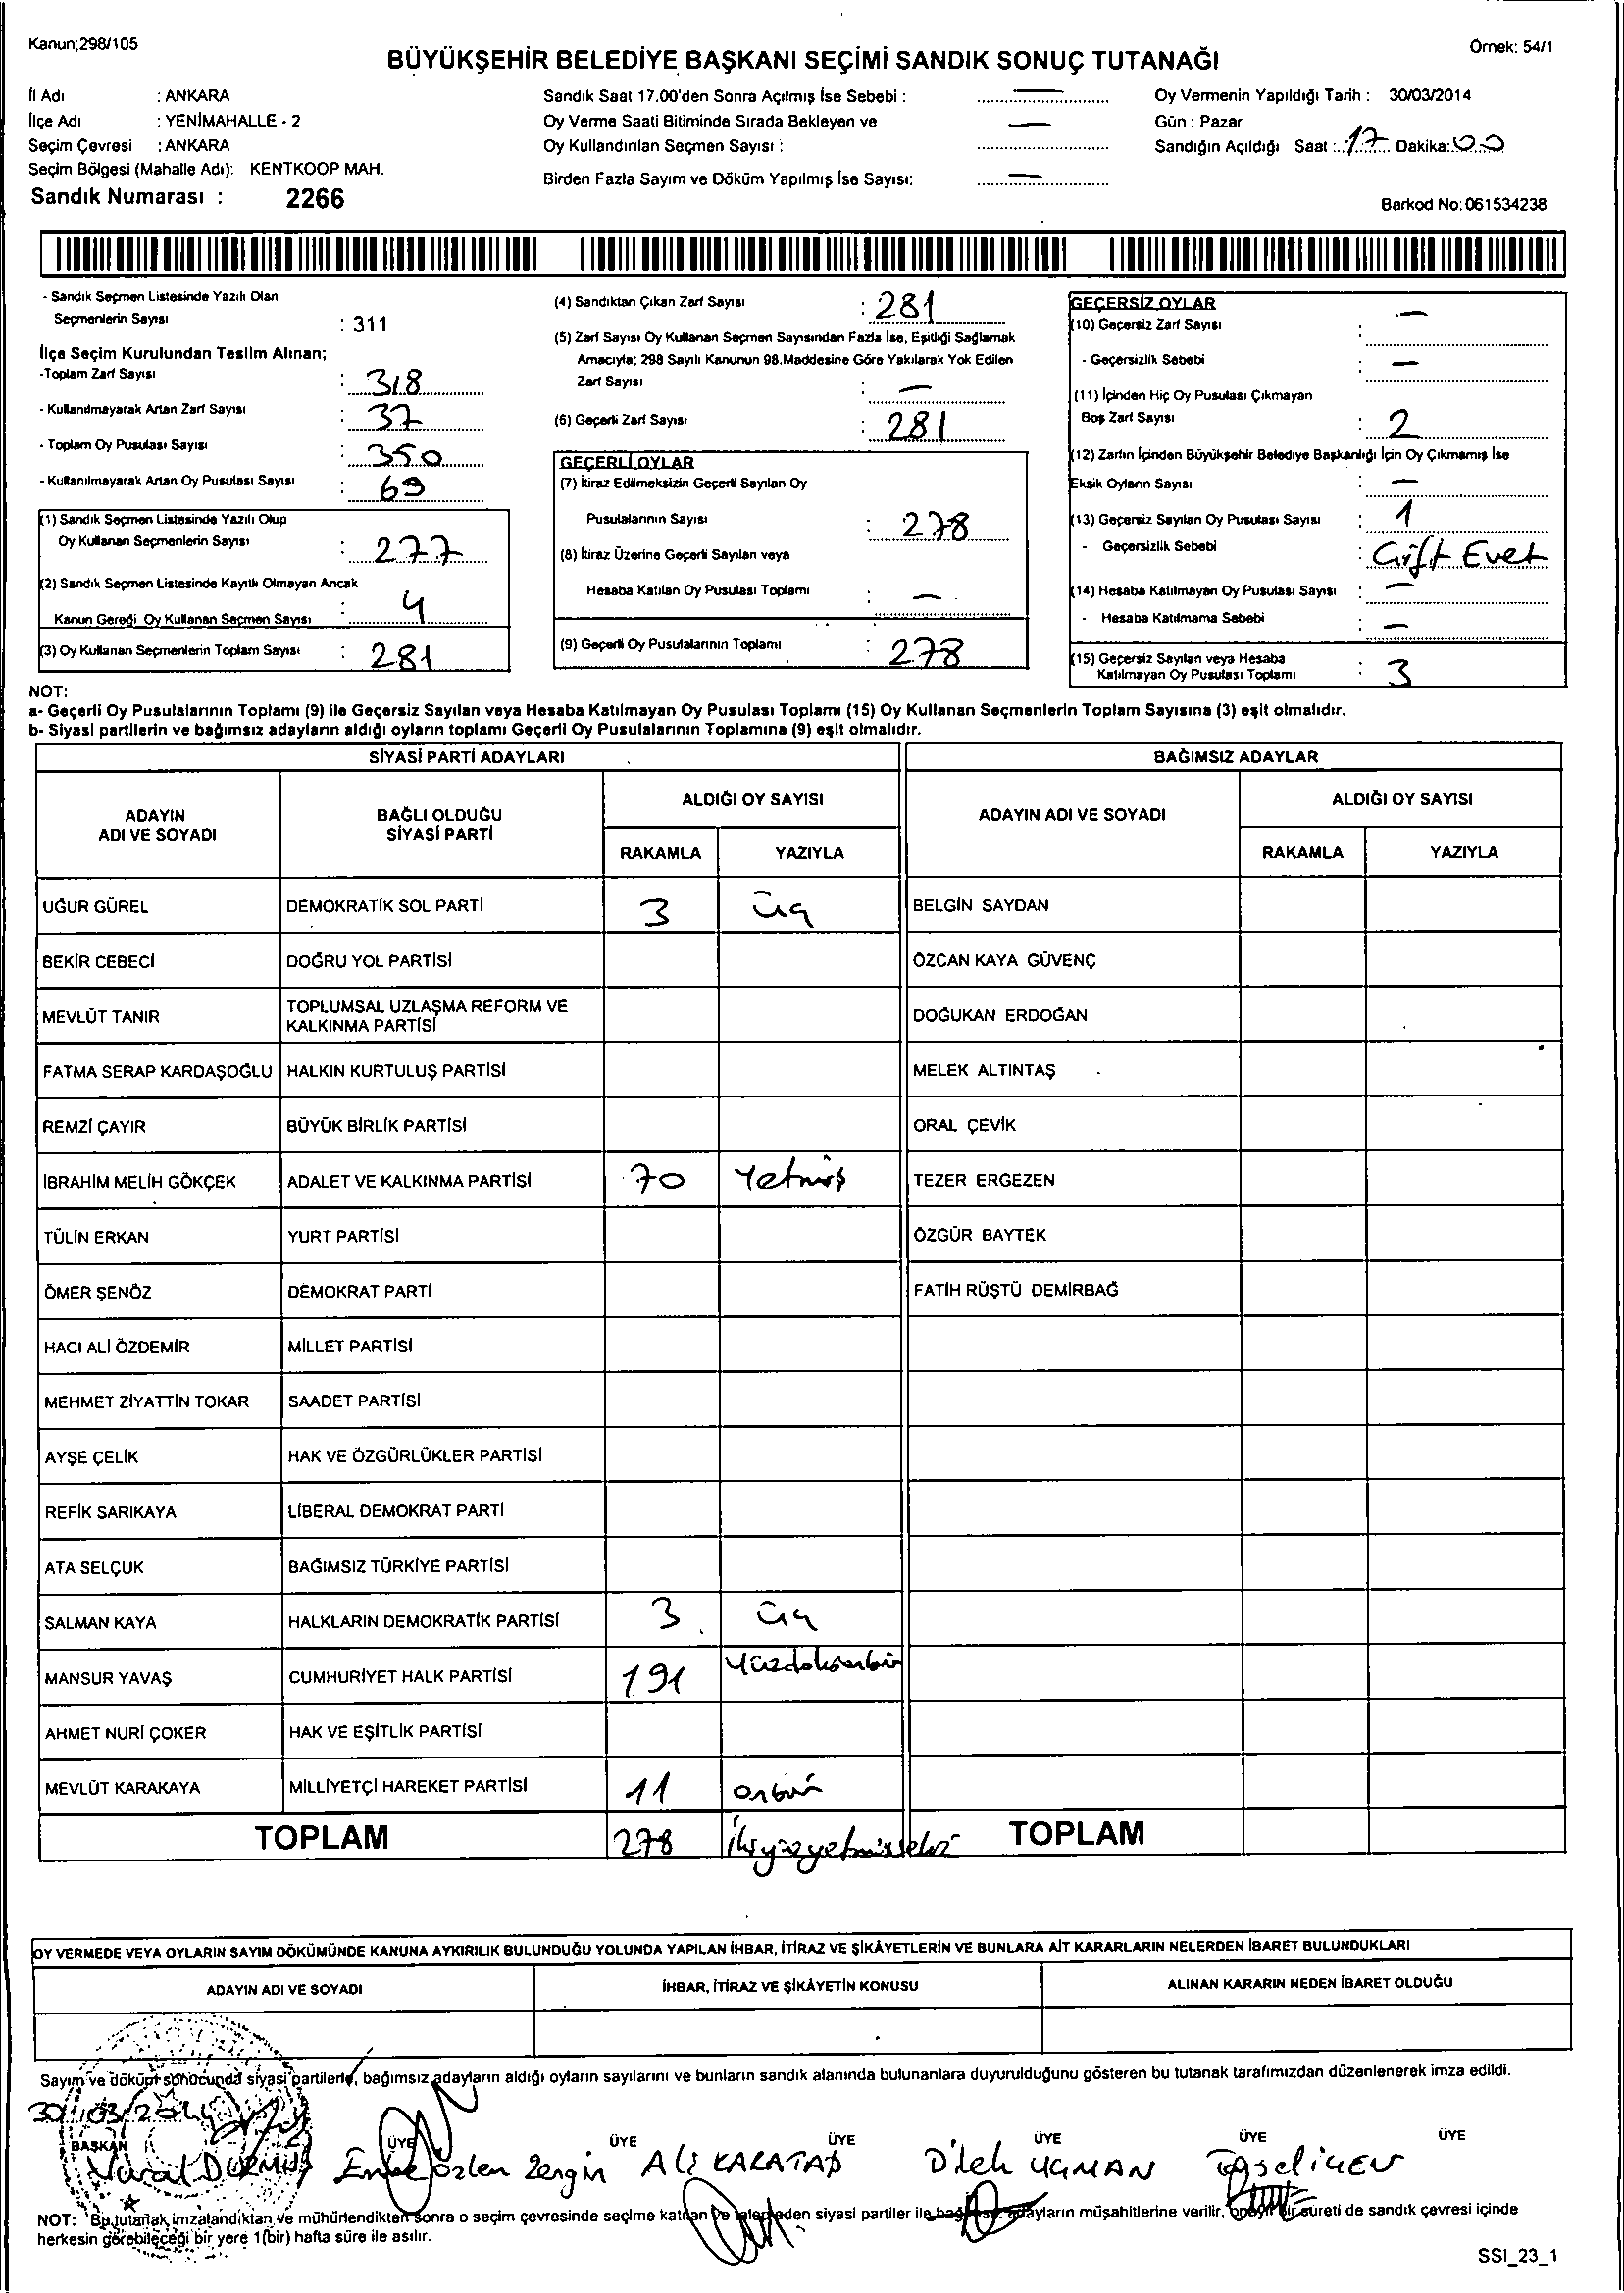 Kanun;298/105
Örnek: 54/1
BÜYÜKŞEHİR BELEDİYE BAŞKANI SEÇİMİ SANDIK SONUÇ TUTANAĞI
İl Adı : ANKARA
İlçe Adı : YENİMAHALLE - 2
Seçim Çevresi : ANKARA
Seçim Bölgesi (Mahalle Adı): KENTKOOP MAH.
Sandık Numarası : 2266
Sandık Saat 17.00'den Sonra Açılmış İse Sebebi : —
Oy Verme Saati Bitiminde Sırada Bekleyen ve —
Oy Kullandırılan Seçmen Sayısı :
Birden Fazla Sayım ve Döküm Yapılmış İse Sayısı: —
Oy Vermenin Yapıldığı Tarih : 30/03/2014
Gün : Pazar
Sandığın Açıldığı Saat : 17 Dakika: 00
Barkod No: 061534238
- Sandık Seçmen Listesinde Yazılı Olan
Seçmenlerin Sayısı : 311
İlçe Seçim Kurulundan Teslim Alınan;
-Toplam Zarf Sayısı : 318
- Kullanılmayarak Artan Zarf Sayısı : 37
- Toplam Oy Pusulası Sayısı : 350
- Kullanılmayarak Artan Oy Pusulası Sayısı : 69
(1) Sandık Seçmen Listesinde Yazılı Olup
Oy Kullanan Seçmenlerin Sayısı : 277
(2) Sandık Seçmen Listesinde Kayıtlı Olmayan Ancak
Kanun Gereği Oy Kullanan Seçmen Sayısı : 4
(3) Oy Kullanan Seçmenlerin Toplam Sayısı : 281
(4) Sandıktan Çıkan Zarf Sayısı : 281
(5) Zarf Sayısı Oy Kullanan Seçmen Sayısından Fazla İse, Eşitliği Sağlamak
Amacıyla; 298 Sayılı Kanunun 98.Maddesine Göre Yakılarak Yok Edilen
Zarf Sayısı : —
(6) Geçerli Zarf Sayısı : 281
GEÇERLİ OYLAR
(7) İtiraz Edilmeksizin Geçerli Sayılan Oy
Pusulalarının Sayısı : 278
(8) İtiraz Üzerine Geçerli Sayılan veya
Hesaba Katılan Oy Pusulası Toplamı : —
(9) Geçerli Oy Pusulalarının Toplamı : 278
GEÇERSİZ OYLAR
(10) Geçersiz Zarf Sayısı : —
- Geçersizlik Sebebi : —
(11) İçinden Hiç Oy Pusulası Çıkmayan
Boş Zarf Sayısı : 2
(12) Zarfın İçinden Büyükşehir Belediye Başkanlığı İçin Oy Çıkmamış İse
Eksik Oyların Sayısı : —
(13) Geçersiz Sayılan Oy Pusulası Sayısı : 1
- Geçersizlik Sebebi : Çift Evet
(14) Hesaba Katılmayan Oy Pusulası Sayısı : —
- Hesaba Katılmama Sebebi : —
(15) Geçersiz Sayılan veya Hesaba
Katılmayan Oy Pusulası Toplamı : 3
NOT:
a- Geçerli Oy Pusulalarının Toplamı (9) ile Geçersiz Sayılan veya Hesaba Katılmayan Oy Pusulası Toplamı (15) Oy Kullanan Seçmenlerin Toplam Sayısına (3) eşit olmalıdır.
b- Siyasi partilerin ve bağımsız adayların aldığı oyların toplamı Geçerli Oy Pusulalarının Toplamına (9) eşit olmalıdır.
SİYASİ PARTİ ADAYLARI BAĞIMSIZ ADAYLAR
ADAYIN ADI VE SOYADI BAĞLI OLDUĞU SİYASİ PARTİ ALDIĞI OY SAYISI ADAYIN ADI VE SOYADI ALDIĞI OY SAYISI
RAKAMLA YAZIYLA RAKAMLA YAZIYLA
UĞUR GÜREL DEMOKRATİK SOL PARTİ 3 üç BELGİN SAYDAN
BEKİR CEBECİ DOĞRU YOL PARTİSİ ÖZCAN KAYA GÜVENÇ
MEVLÜT TANIR TOPLUMSAL UZLAŞMA REFORM VE KALKINMA PARTİSİ DOĞUKAN ERDOĞAN
FATMA SERAP KARDAŞOĞLU HALKIN KURTULUŞ PARTİSİ MELEK ALTINTAŞ
REMZİ ÇAYIR BÜYÜK BİRLİK PARTİSİ ORAL ÇEVİK
İBRAHİM MELİH GÖKÇEK ADALET VE KALKINMA PARTİSİ 70 Yetmiş TEZER ERGEZEN
TÜLİN ERKAN YURT PARTİSİ ÖZGÜR BAYTEK
ÖMER ŞENÖZ DEMOKRAT PARTİ FATİH RÜŞTÜ DEMİRBAĞ
HACI ALİ ÖZDEMİR MİLLET PARTİSİ
MEHMET ZİYATTİN TOKAR SAADET PARTİSİ
AYŞE ÇELİK HAK VE ÖZGÜRLÜKLER PARTİSİ
REFİK SARIKAYA LİBERAL DEMOKRAT PARTİ
ATA SELÇUK BAĞIMSIZ TÜRKİYE PARTİSİ
SALMAN KAYA HALKLARIN DEMOKRATİK PARTİSİ 3 üç
MANSUR YAVAŞ CUMHURİYET HALK PARTİSİ 191 yüzdoksanbir
AHMET NURİ ÇOKER HAK VE EŞİTLİK PARTİSİ
MEVLÜT KARAKAYA MİLLİYETÇİ HAREKET PARTİSİ 11 onbir
TOPLAM 278 ikiyüzyetmişsekiz TOPLAM
OY VERMEDE VEYA OYLARIN SAYIM DÖKÜMÜNDE KANUNA AYKIRILIK BULUNDUĞU YOLUNDA YAPILAN İHBAR, İTİRAZ VE ŞİKÂYETLERİN VE BUNLARA AİT KARARLARIN NELERDEN İBARET BULUNDUKLARI
ADAYIN ADI VE SOYADI İHBAR, İTİRAZ VE ŞİKÂYETİN KONUSU ALINAN KARARIN NEDEN İBARET OLDUĞU
Sayım ve döküm sonucunda siyasi partilerle, bağımsız adayların aldığı oyların sayılarını ve bunların sandık alanında bulunanlara duyurulduğunu gösteren bu tutanak tarafımızdan düzenlenerek imza edildi.
30/03/2014
BAŞKAN ÜYE ÜYE ÜYE ÜYE ÜYE ÜYE
Vural DURMUŞ Emine Özlen Zengin ALİ KARATAŞ Dilek UÇMAN
NOT: Bu tutanak imzalandıktan ve mühürlendikten sonra o seçim çevresinde seçime katılan ve talep eden siyasi partiler ile bağımsız adayların müşahitlerine verilir, onaylı bir sureti de sandık çevresi içinde
herkesin görebileceği bir yere 1(bir) hafta süre ile asılır.
SSI_23_1